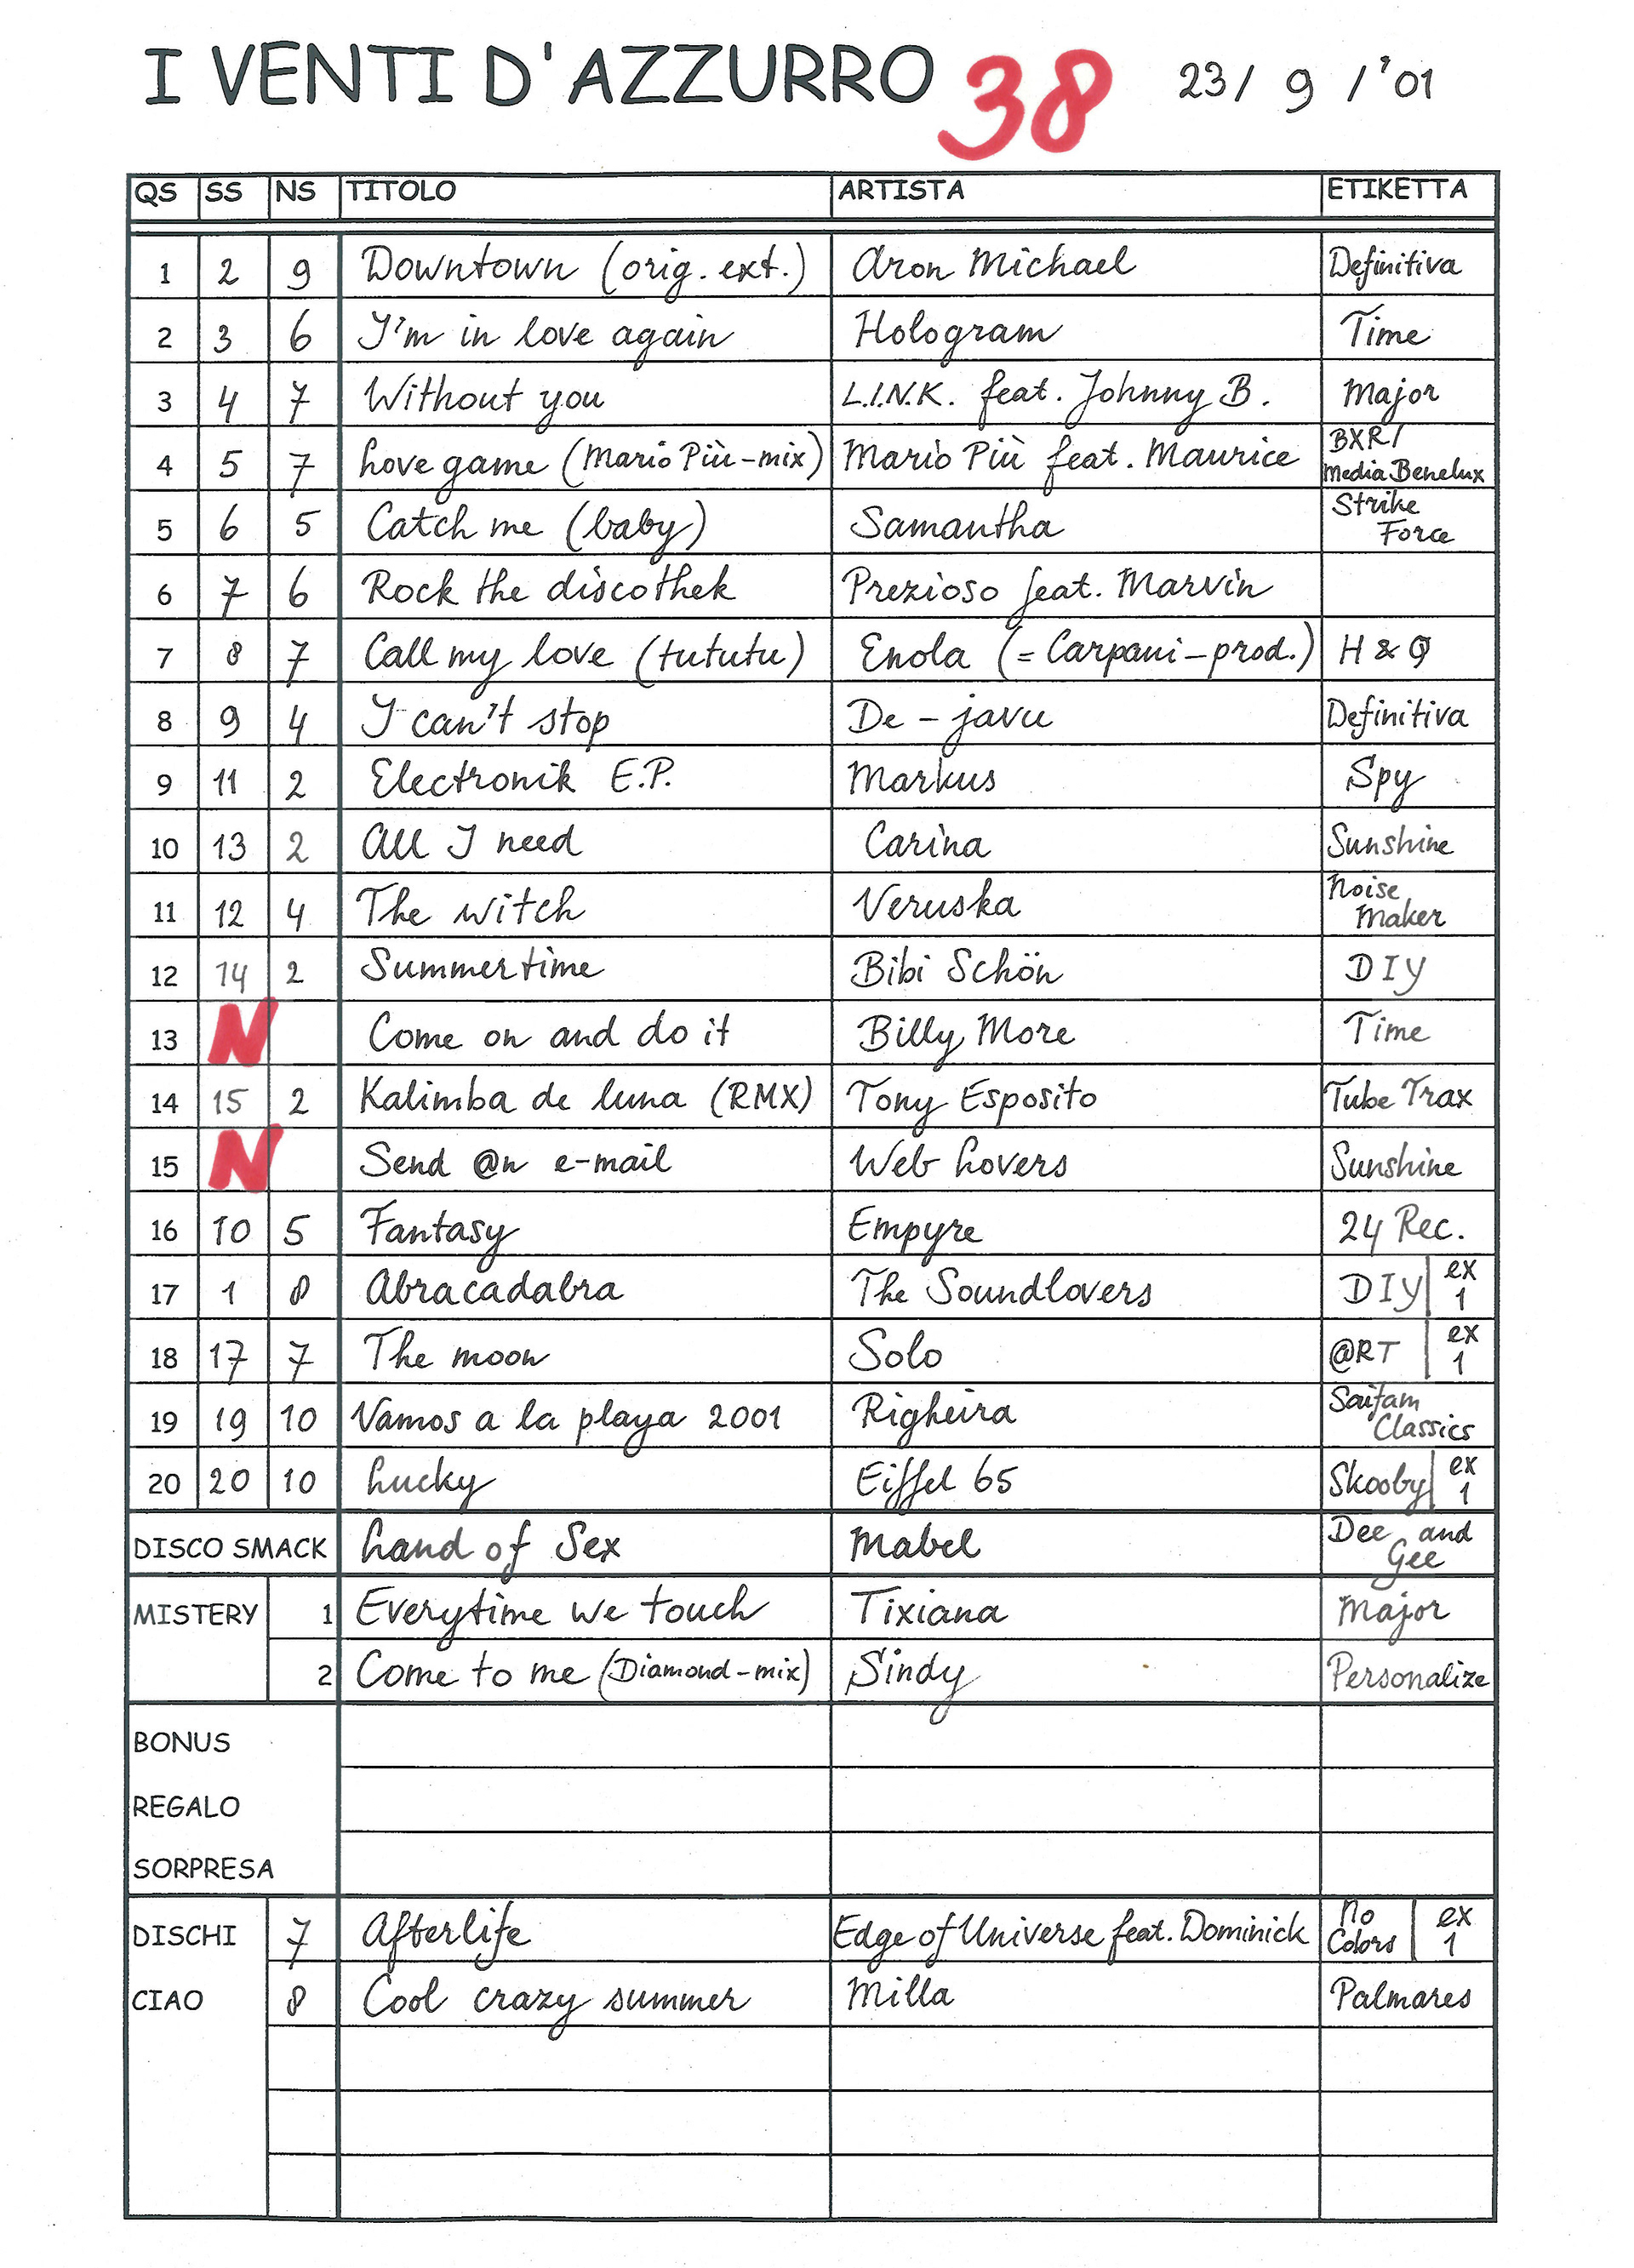 I VENTI D'AZZURRO 38 23/ 9 /'01
QS SS NS TITOLO ARTISTA ETIKETTA
1 2 9 Downtown (orig. ext.) Aron Michael Definitiva
2 3 6 I'm in love again Hologram Time
3 4 7 Without you L.I.N.K. feat. Johnny B. Major
4 5 7 Love game (Mario Più-mix) Mario Più feat. Maurice BXR/
Media Benelux
5 6 5 Catch me (baby) Samantha Strike
Force
6 7 6 Rock the discothek Prezioso feat. Marvin
7 8 7 Call my love (tututu) Enola (= Carpani-prod.) H & Q
8 9 4 I can't stop De-javu Definitiva
9 11 2 Electronik E.P. Markus Spy
10 13 2 All I need Carina Sunshine
11 12 4 The witch Veruska Noise
Maker
12 14 2 Summertime Bibi Schön DIY
13 N Come on and do it Billy More Time
14 15 2 Kalimba de luna (RMX) Tony Esposito Tube Trax
15 N Send @n e-mail Web Lovers Sunshine
16 10 5 Fantasy Empyre 24 Rec.
17 1 8 Abracadabra The Soundlovers DIY ex
1
18 17 7 The moon Solo @RT ex
1
19 19 10 Vamos a la playa 2001 Righeira Saifam
Classics
20 20 10 Lucky Eiffel 65 Skooby ex
1
DISCO SMACK Land of Sex Mabel Dee and
Gee
MISTERY 1 Everytime we touch Tixiana Major
2 Come to me (Diamond-mix) Sindy Personalize
BONUS
REGALO
SORPRESA
DISCHI 7 Afterlife Edge of Universe feat. Dominick No
Colors ex
1
CIAO 8 Cool crazy summer Milla Palmares